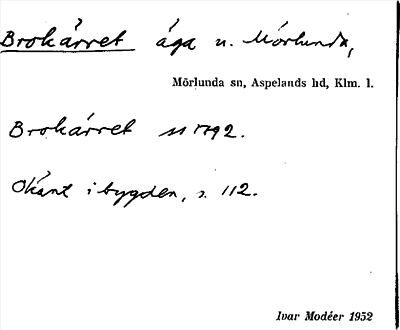 Brokärret äga u. Mörlunda,
Mörlunda sn, Aspelands hd, Klm. l.
Brokärret 1792.
Okänt i bygden, s. 112.
Ivar Modéer 1952